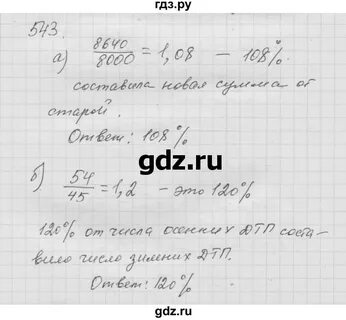 gdz.ru
543.
а) 8640/8000 = 1,08 – 108%
составила новая сумма от
старой.
Ответ: 108%
gdz.ru
б) 54/45 = 1,2 – это 120%
120% от числа осенних ДТП соста-
вило число зимних ДТП.
Ответ: 120%
gdz.ru